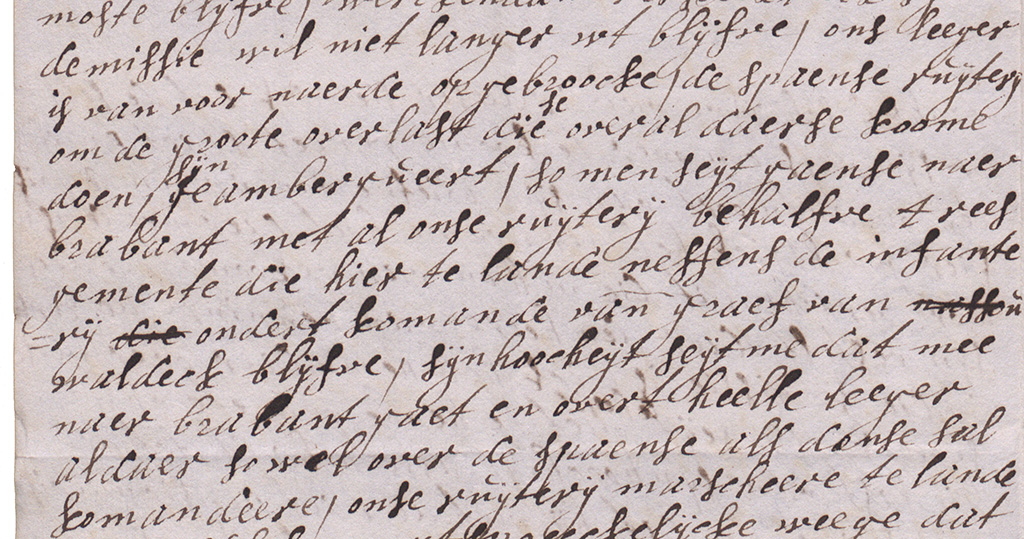 moste blijfve /
demissie wil niet langer wt blijfve / ons leeger
is van voor naerde opgebroocke / de spaense ruijters
om de groote overlast die se overal daerse koome
doen / sijn geambergueert / so men seijt gaense naer
brabant met al onse ruijterij behalfve 4 rees
gemente die hier te lande neffens de infante
=rij die ondert komande van graef van nassou
waldeck blijfve / sijn hoocheijt seijt me dat mee
naer brabant gaet en overt heelle leeger
aldaer so wel over de spaense als d onse sal
komandeere / onse ruijterij marscheere te lande
weege dat